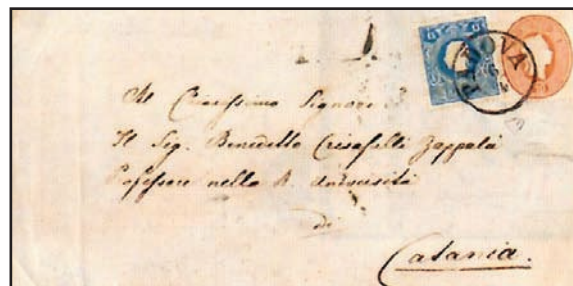 PADOVA
Al Chiarissimo Signore
Il Sig. Benedetto Crisafulli Zappalà
Professore nella R. Università
di
Catania.